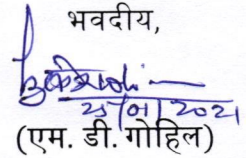 भवदीय,
25/01/2021
(एम. डी. गोहिल)